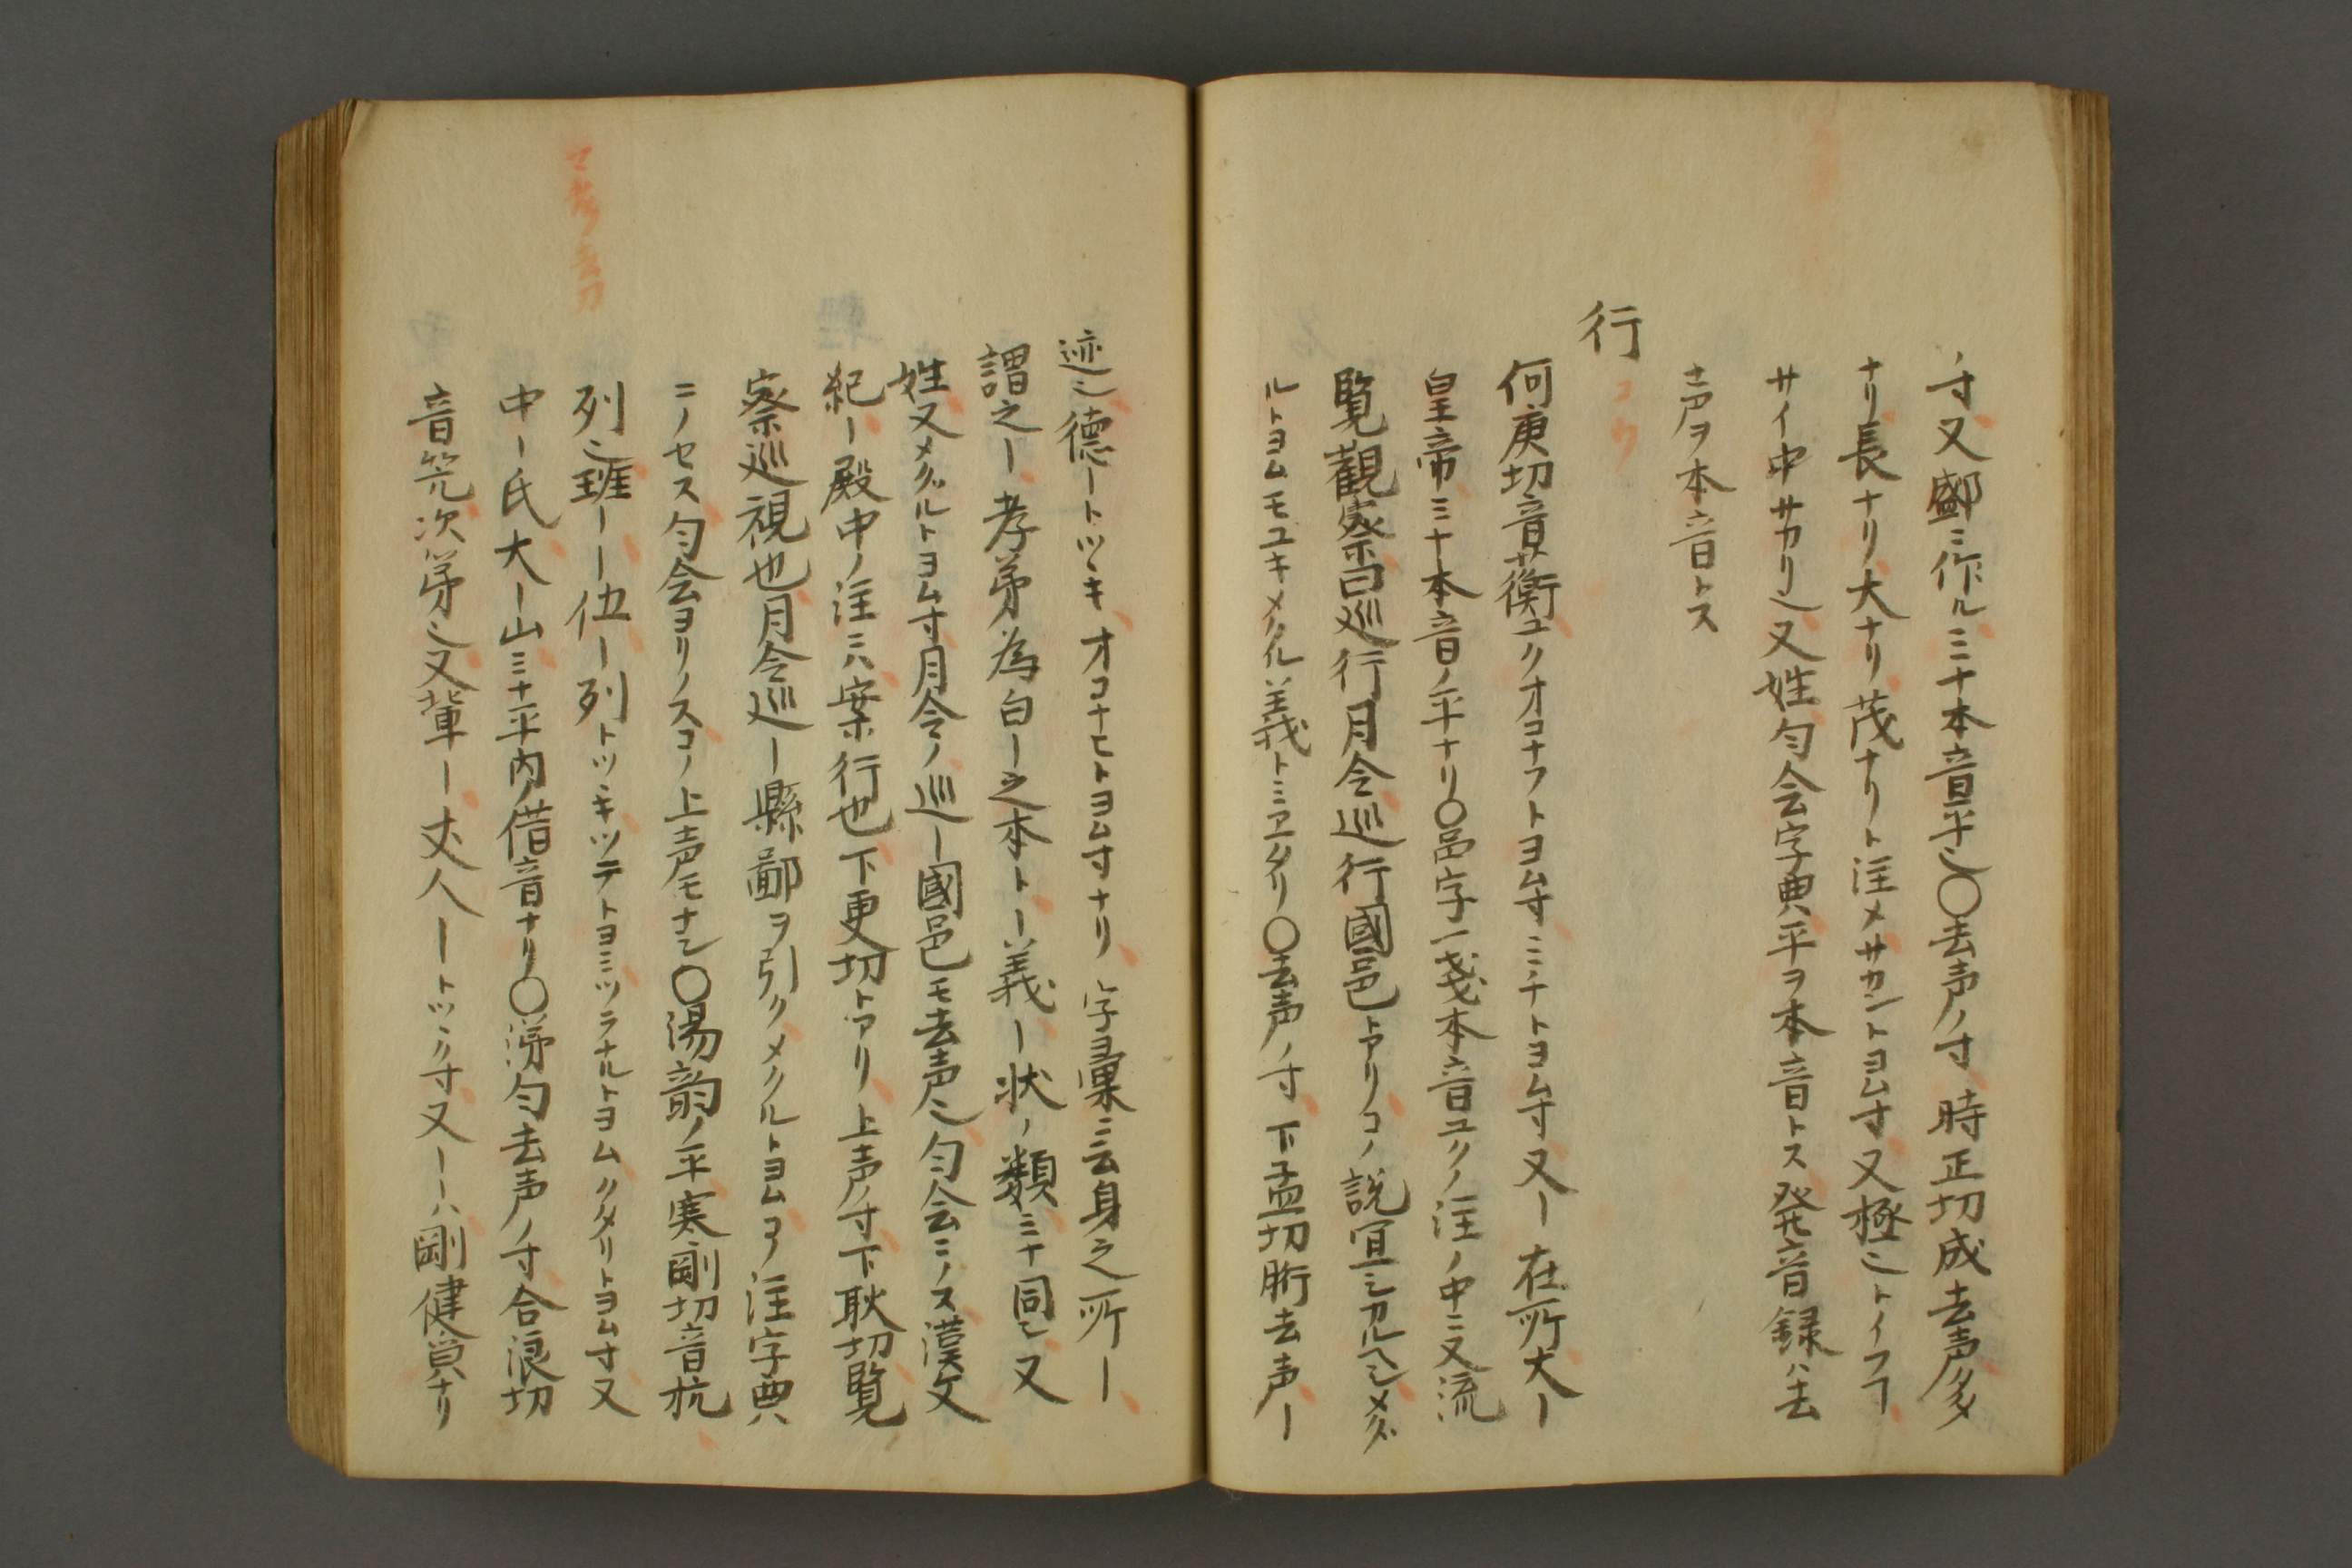 ノ寸又郕ニ作ルミナ本音平也〇去声ノ寸時正切成去声多
ナリ長ナリ大ナリ茂ナリト注メサカントヨム寸又極也トイフヿ
サイ中サカリ也又姓匀会字典平ヲ本音トス発音録ハ去
声ヲ本音トス
行 コウ
何庚切音衡ユクオコナフトヨム寸ミチトヨム寸又ー在所大ー
皇帝ミナ本音ノ平ナリ〇品字一戔本音ユクノ注ノ中ニ又流
覧觀察曰巡行月令巡行國邑トアリコノ説宜シカルヘシメグ
ルトヨムモユキメクル義トミエタリ〇去声ノ寸下孟切胻去声ー
迹也德ートツヾキオコナヒトヨム寸ナリ字彙ニ云身之所ー
謂之ー孝弟為百ー之本トー義ー状ノ類ミナ同也又
姓又メグルトヨム寸月令ノ巡ー國邑モ去声也匀会ニノス漢文
紀ー殿中ノ注ニハ案行也下更切トアリ上声ノ寸下耿切覧
察巡視也月令巡ー縣鄙ヲ引クメクルトヨムコノ注字典ハ
ニノセス匀会ヨリノスコノ上声モナシ〇湯韵ノ平寒剛切音杭
列也班ーー伍ー列トツヾキツラトヨミツラナルトヨムクタリトヨム寸又
中ー氏大ー山ミナ平内ノ借音ナリ〇漾匀去声ノ寸合浪切
音笐次第也又輩ー丈人ートツヾク寸又ーーハ剛健皃ナリ